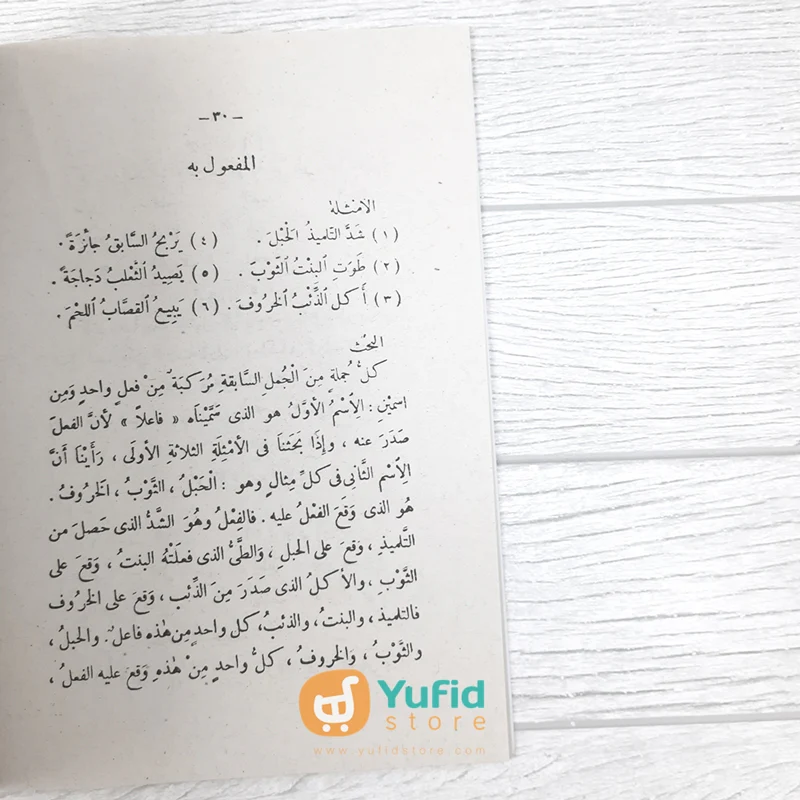 – ٣٠ –
المفعول به
الأمثلة
(١) شَدَّ التلميذُ الحَبْلَ . (٤) يَرْبحُ السَّابقُ جائزةً .
(٢) طَوَتِ البِنْتُ الثَّوْبَ . (٥) يَصِيدُ الثَّعْلَبُ دَجاجَةً .
(٣) أكلَ الذِّئْبُ الخروفَ . (٦) يَبِيعُ القصَّابُ اللحْمَ .
البحث
كلُّ جُملةٍ مِنَ الجُمَلِ السَّابقةِ مُرَكبَةٌ مِنْ فعلٍ واحدٍ وَمِنِ
اسمَيْنِ : الاِسْمُ الأوَّلُ هو الذى سَمَّيْنَاه « فاعلاً » لأنَّ الفعلَ
صَدَرَ عنه ، وإذَا بَحَثنَا فى الأمْثِلَةِ الثلاثةِ الأولَى ، رَأَيْنَا أنَّ
الاِسْمَ الثَّانِى فى كلِّ مِثالٍ وهو : الحَبْلُ ، الثوْبُ ، الخروفُ .
هُو الذى وَقَعَ الفعْلُ عليه . فالفِعْلُ وهُوَ الشَّدُّ الذى حَصلَ من
التلميذِ ، وَقعَ على الحبلِ ، وَالطىُّ الذى فعلَتْهُ البنتُ ، وَقعَ على
الثَّوْبِ ، والأكلُ الذى صَدَرَ مِنَ الذِّئب ، وَقعَ على الخروف
فالتلميذُ ، والبنتُ ، والذئبُ ، كل واحدٍ مِن هذه فاعلٌ . والحبلُ ،
والثَّوْبُ ، وَالخروفُ ، كلُّ واحدٍ مِنْ هٰذهِ وَقعَ عليه الفعلُ ،
Yufid
store
www.yufidstore.com